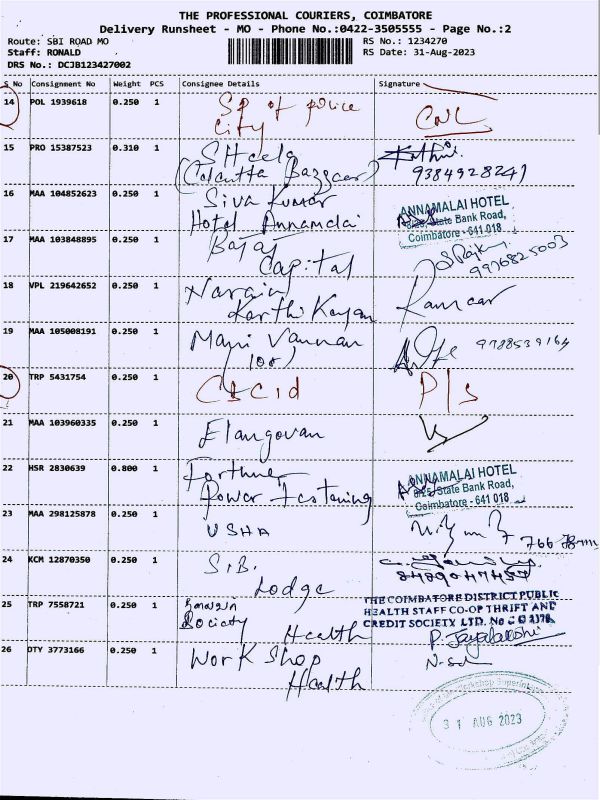 THE PROFESSIONAL COURIERS, COIMBATORE
Delivery Runsheet - MO - Phone No.:0422-3505555 - Page No.:2
Route: SBI ROAD MO RS No.: 1234270
Staff: RONALD RS Date: 31-Aug-2023
DRS No.: DCJB123427002
S No Consignment No Weight PCS Consignee Details Signature
14 POL 1939618 0.250 1 SP of police
City CNL
15 PRO 15387523 0.310 1 SHeela
(Calcutta Bazzaar) 9384928241
16 MAA 104852623 0.250 1 Siva Kumar
Hotel Annamalai
ANNAMALAI HOTEL
8/25, State Bank Road,
Coimbatore - 641 018
17 MAA 103848895 0.250 1 Bajaj
Capital 9976825003
18 VPL 219642652 0.250 1 Narain
Karthi Kayan
19 MAA 105008191 0.250 1 Mani Vannan
9788539164
20 TRP 5431754 0.250 1 CBCid P/S
21 MAA 103960335 0.250 1 Elangovan
22 HSR 2830639 0.800 1 Fortune
Power fastening
ANNAMALAI HOTEL
8/25, State Bank Road,
Coimbatore - 641 018
23 MAA 298125878 0.250 1 USHA
24 KCM 12870350 0.250 1 S.B.
Lodge
25 TRP 7558721 0.250 1
Society
Health
THE COIMBATORE DISTRICT PUBLIC
HEALTH STAFF CO-OP THRIFT AND
CREDIT SOCIETY LTD.
P. Jayalakshi
26 DTY 3773166 0.250 1 Work Shop
Health
31 AUG 2023